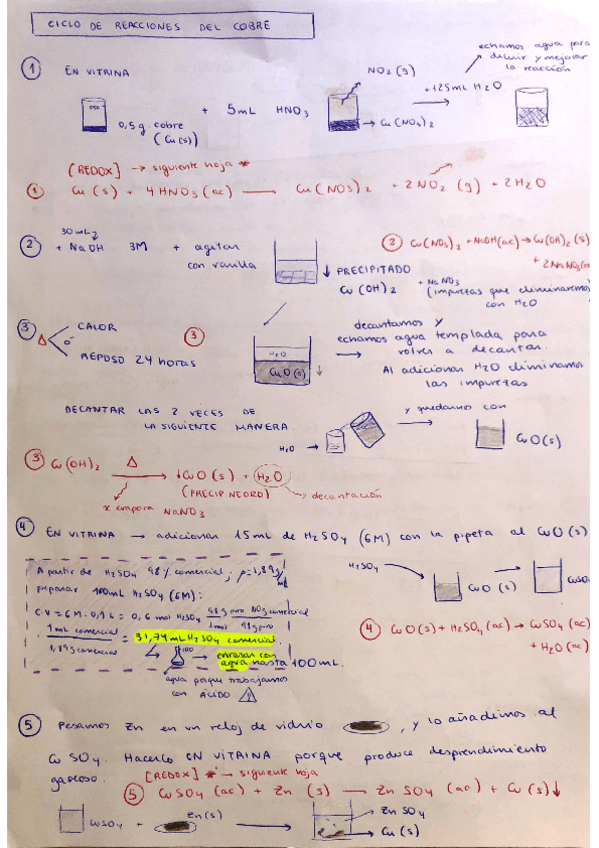 CICLO DE REACCIONES DEL COBRE
echamos agua para
diluir y mejorar
la reacción
1 EN VITRINA
NO2 (g)
0,5 g. cobre
(Cu(s))
+ 5mL HNO3
→ Cu(NO3)2
+125mL H2O
[REDOX] → siguiente hoja *
1 Cu(s) + 4HNO3(ac) → Cu(NO3)2 + 2NO2 (g) + 2H2O
2 30mL
+ NaOH 3M + agitar
con varilla
↓ PRECIPITADO
Cu(OH)2 + NaNO3
(impurezas que eliminaremos
con H2O
2 Cu(NO3)2 + NaOH(ac) → Cu(OH)2(s)
+ 2NaNO3(ac
3 Δ CALOR
ó
REPOSO 24 horas
3
H2O
CuO(s) ↓
decantamos y
echamos agua templada para
volver a decantar.
Al adicionar H2O eliminamos
las impurezas
DECANTAR LAS 2 VECES DE
LA SIGUIENTE MANERA.
H2O →
y quedarnos con
CuO(s)
3 Cu(OH)2 Δ → ↓CuO(s) + H2O
(PRECIP NEGRO) → decantación
x evapora NaNO3
4 EN VITRINA → adicionar 15mL de H2SO4 (6M) con la pipeta al CuO(s)
A partir de H2SO4 98% comercial; ρ=1,89g/mL
preparar 100mL H2SO4 (6M):
C·V = 6M·0,1L = 0,6 mol H2SO4
1mL comercial = 31,74mL H2SO4 comercial.
1,89g comercial
100
→ enrasar con
agua hasta 100mL.
agua porque trabajamos
con ÁCIDO
H2SO4
CuO(s)
CuSO4
4 CuO(s) + H2SO4(ac) → CuSO4(ac)
+ H2O(ac)
5 Pesamos Zn en un reloj de vidrio, y lo añadimos al
CuSO4. Hacerlo EN VITRINA porque produce desprendimiento
gaseoso.
[REDOX] * → siguiente hoja
5 CuSO4 (ac) + Zn (s) → ZnSO4 (ac) + Cu(s)↓
CuSO4 + Zn(s)
→ ZnSO4
→ Cu(s)